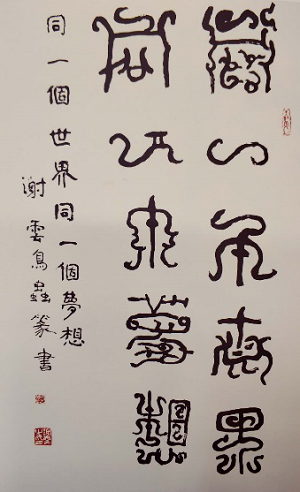 同一個世界
同一個夢想
同一個世界同一個夢想
謝雲鳥蟲篆書